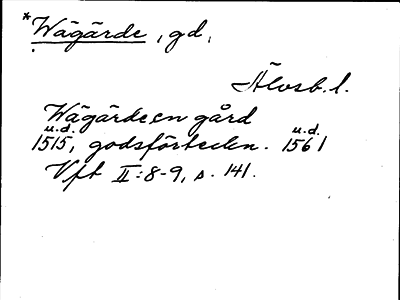 *Wägärde, gd,
Älvsb. l.
Wägärde en gård
u.d. u.d.
1515, godsförteckn. 1561
Vft II:8-9, s. 141.